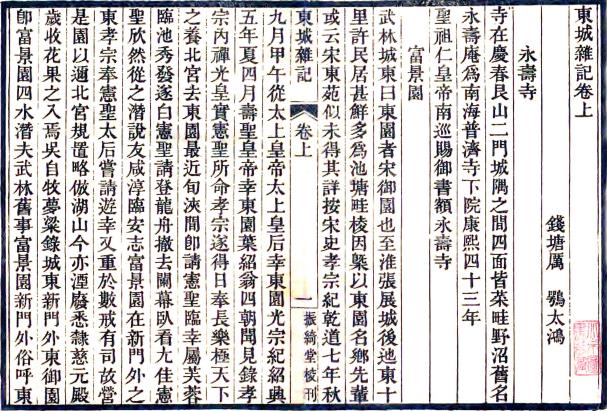 東城雜記卷上
錢塘厲　鶚太鴻
永壽寺
寺在慶春艮山二門城隅之間四面皆菜畦野沼舊名
永壽庵爲南海普濟寺下院康熙四十三年
聖祖仁皇帝南巡賜御書額永壽寺
富景園
武林城東曰東園者宋御園也至淮張展城後池東十
里許民居甚鮮多爲池塘畦棱因槩以東園名鄉先輩
或云宋東苑似未得其詳按宋史孝宗紀乾道七年秋
東城雜記　卷上　一　振綺堂校刊
九月甲午從太上皇帝太上皇后幸東園光宗紀紹興
五年夏四月壽聖皇帝幸東園葉紹翁四朝聞見錄孝
宗内禪光皇實憲聖所命孝宗遂得日奉長樂極天下
之養北宮去東園最近旬浹間卽請憲聖臨幸屬芙蓉
臨池秀發遂白憲聖請登龍舟撤去闌幕臥看尤佳憲
聖欣然從之潛說友咸淳臨安志富景園在新門外之
東孝宗奉憲聖太后嘗請遊幸又重於數戒有司故營
是園以邇北宮規置略倣湖山今亦湮廢悉隸慈元殿
歲收花果之入焉吳自牧夢粱錄城東新門外東御園
卽富景園四水潛夫武林舊事富景園新門外俗呼東